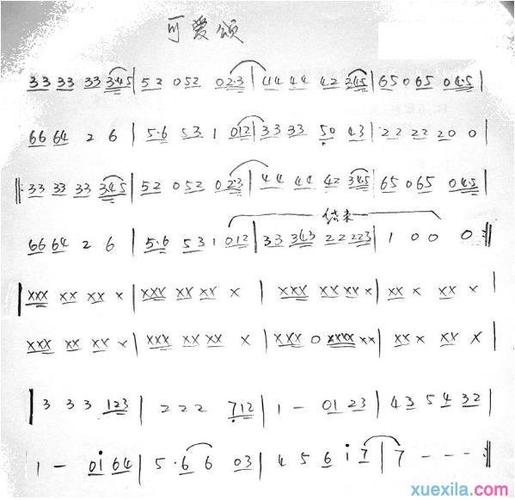 可爱颂
33 33 33 345 | 52 052 02·3 | 44 44 42 245 | 65 065 04·5 |
66 64 2 6 | 5·6 53 1 012 | 33 33 50 43 | 22 22 20 0 |
‖: 33 33 33 345 | 52 052 02·3 | 44 44 42 345 | 65 065 04·5 |
结束
66 64 2 6 | 5·6 53 1 012 | 33 343 22 223 | 1 0 0 0 :‖
| xxx xx xx x | xxx xx xx x | xxx xx xx x | xx xx xx x |
xxx xx xx x | xxx xx xx x | xxx 0 xxxx xx | xx x xx x |
| 3 3 3 123 | 2 2 2 712 | 1 - 01 23 | 43 5 4 32 |
1 - 0i 64 | 5·6 6 03 | 4 5 6 i 7 | 7 - - - :‖
xuexila.com